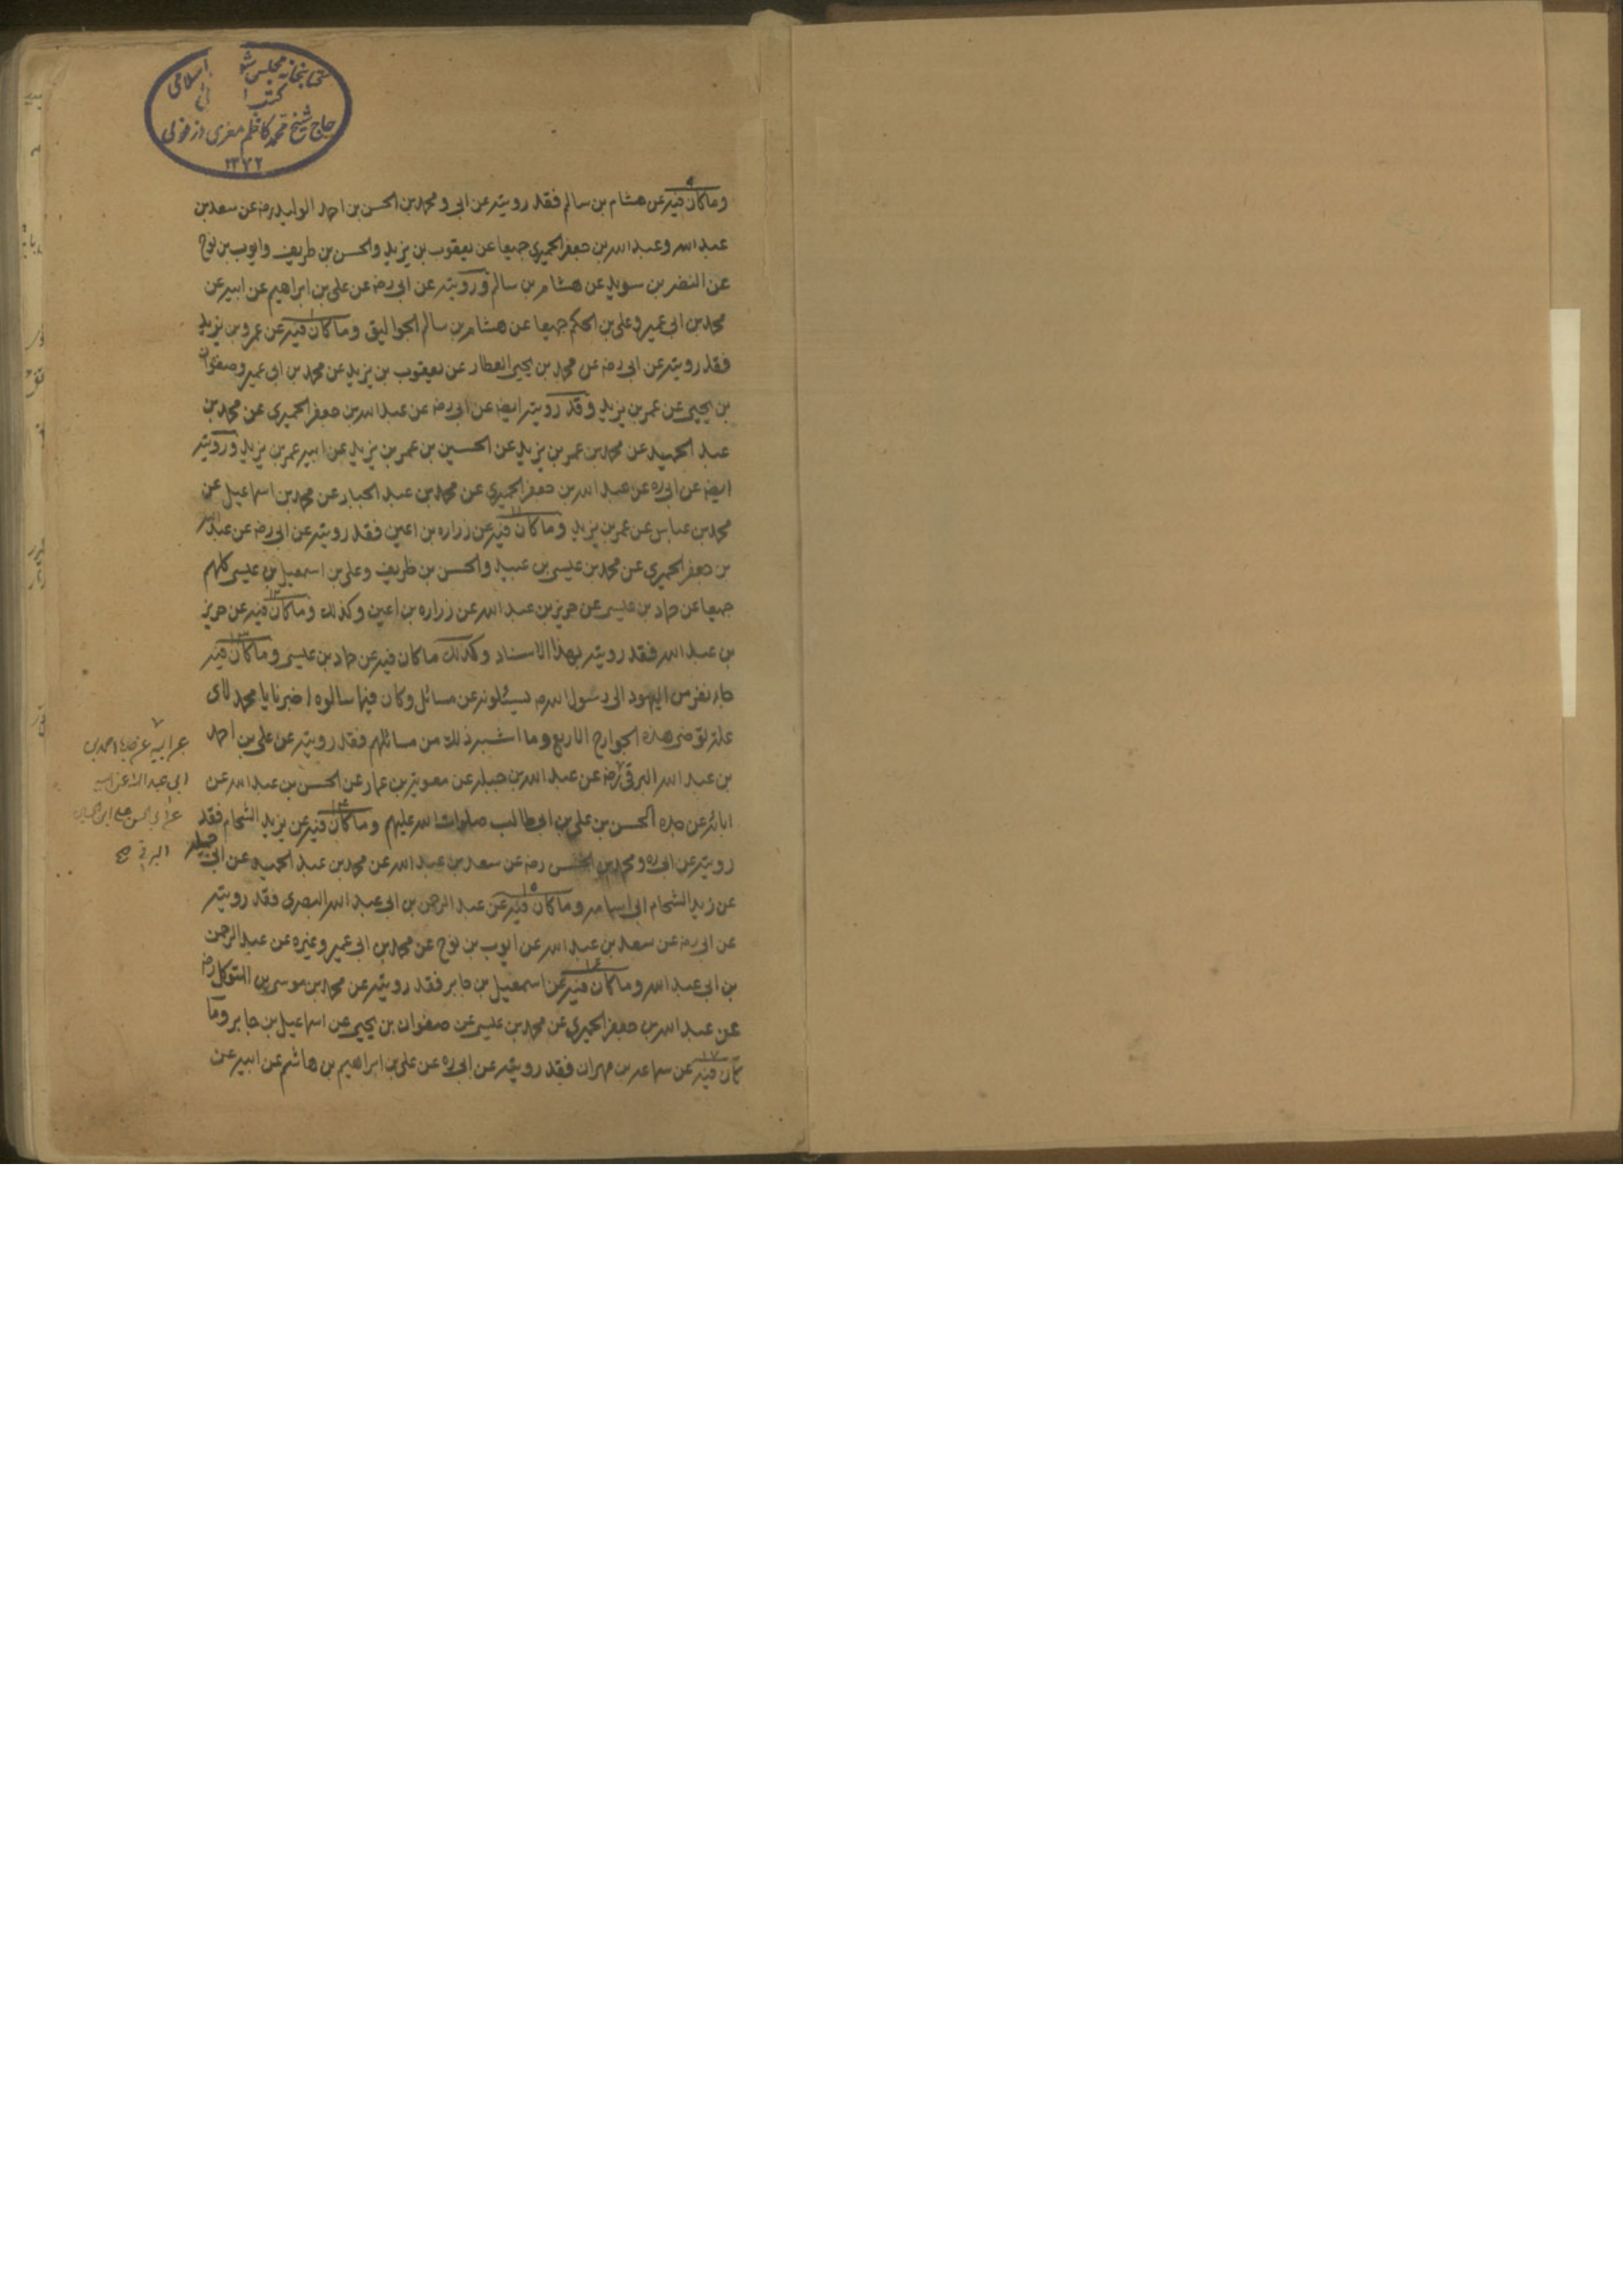 كتابخانه مجلس شو اسلامی
حاج شیخ محمد کاظم معزی دزفولی
۱۳۷۲
وما كان فيه عن هشام بن سالم فقد رويته عن ابى ومحمد بن الحسن بن احمد الوليد رضه عن سعد بن
عبد الله وعبد الله بن جعفر الحميرى جميعا عن يعقوب بن يزيد والحسن بن ظريف وايوب بن نوح
عن النضر بن سويد عن هشام بن سالم ورويته عن ابى رضه عن على بن ابراهيم عن ابيه عن
محمد بن ابى عمير وعلى بن الحكم جميعا عن هشام بن سالم الجواليقى وما كان فيه عن عمرو بن يزيد
فقد رويته عن ابى رضه عن محمد بن يحيى العطار عن يعقوب بن يزيد عن محمد بن ابى عمير وصفوان
بن يحيى عن عمر بن يزيد وقد رويته ايضه عن ابى رضه عن عبد الله بن جعفر الحميرى عن محمد بن
عبد الحميد عن محمد بن عمر بن يزيد عن الحسين بن عمر بن يزيد عن ابيه عمر بن يزيد ورويته
ايضه عن ابى ره عن عبد الله بن جعفر الحميرى عن محمد بن عبد الجبار عن محمد بن اسماعيل عن
محمد بن عباس عن عمر بن يزيد وما كان فيه عن زراره بن اعين فقد رويته عن ابى رضه عن عبد الله
بن جعفر الحميرى عن محمد بن عيسى بن عبيد والحسن بن ظريف وعلى بن اسمعيل بن عيسى كلهم
جميعا عن حماد بن عيسى عن حريز بن عبد الله عن زراره بن اعين وكذلك وما كان فيه عن حريز
بن عبد الله فقد رويته بهذا الاسناد وكذلك ما كان فيه عن حماد بن عيسى وما كان فيه
جاء نفر من اليهود الى رسول الله ص يسئلونه عن مسائل وكان فيها سالوه اخبرنا يا محمد لاى
علة توضى هذه الجوارح الاربع وما اشبه ذلك من مسائلهم فقد رويته عن على بن احمد
بن عبد الله البرقى رضه عن عبد الله بن جبله عن معوية بن عمار عن الحسن بن عبد الله عن
ابائه عن جده الحسن بن على بن ابى طالب صلوات الله عليهم وما كان فيه عن يزيد الشحام فقد
رويته عن ابى ره ومحمد بن الحسن رضه عن سعد بن عبد الله عن محمد بن عبد الحميد عن ابى جميله
عن زيد الشحام ابى اسامه وما كان فيه عن عبد الرحمن بن ابى عبد الله البصرى فقد رويته
عن ابى رضه عن سعد بن عبد الله عن ايوب بن نوح عن محمد بن ابى عمير وغيره عن عبد الرحمن
بن ابى عبد الله وما كان فيه عن اسمعيل بن جابر فقد رويته عن محمد بن موسى بن المتوكل رضه
عن عبد الله بن جعفر الحميرى عن محمد بن عيسى عن صفوان بن يحيى عن اسماعيل بن جابر وما
كان فيه عن سماعه بن مهران فقد رويته عن ابى ره عن على بن ابراهيم بن هاشم عن ابيه عن
عن ابيه عن جده احمد بن
ابى عبد الله عن ابيه
عن ابى الحسن على ابن الحسين
البرقى صح